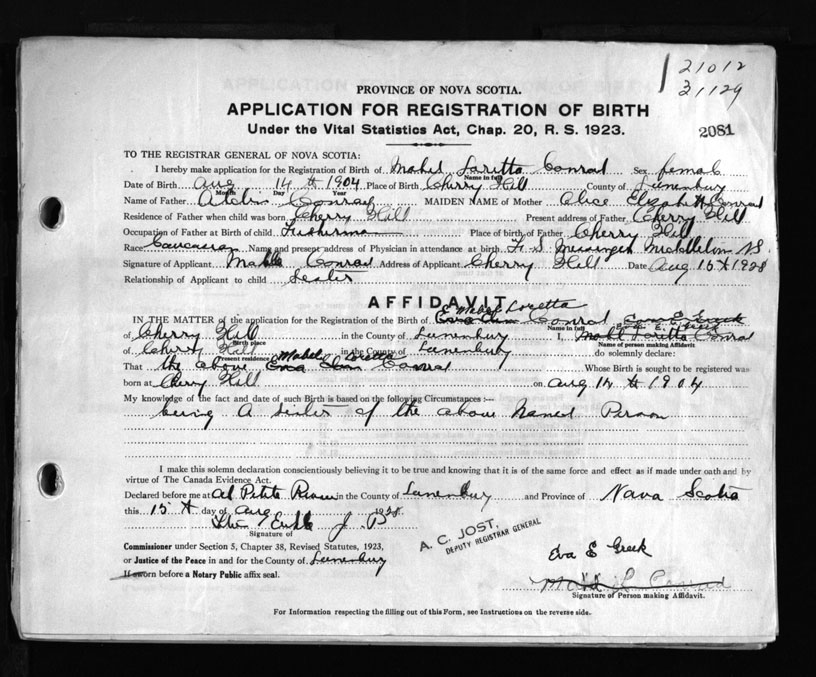 21012
31129
PROVINCE OF NOVA SCOTIA.
APPLICATION FOR REGISTRATION OF BIRTH
Under the Vital Statistics Act, Chap. 20, R. S. 1923.
2081
TO THE REGISTRAR GENERAL OF NOVA SCOTIA:
I hereby make application for the Registration of Birth of Mabel Loretta Conrad Sex female
Name in full
Date of Birth Aug 14th 1904 Place of Birth Cherry Hill County of Lunenburg
Month Day Year
Name of Father Conrad MAIDEN NAME of Mother Alice Elizabeth Conrad
Residence of Father when child was born Cherry Hill Present address of Father Cherry Hill
Occupation of Father at Birth of child Fisherman Place of birth of Father Cherry Hill
Race Caucasian Name and present address of Physician in attendance at birth H. S. Messinger Middleton N.S.
Signature of Applicant Mable Conrad Address of Applicant Cherry Hill Date Aug 15th 1928
Relationship of Applicant to child Sister
AFFIDAVIT
Mabel Loretta
IN THE MATTER of the application for the Registration of the Birth of Conrad
Name in full
Eva E. Greek
of Cherry Hill in the County of Lunenburg I, Mabel Loretta Conrad
Birth place Name of person making Affidavit
of Cherry Hill in the County of Lunenburg do solemnly declare:
Present residence
Mabel Loretta
That the above Eva Conrad Whose Birth is sought to be registered was
born at Cherry Hill on Aug 14th 1904
My knowledge of the fact and date of such Birth is based on the following Circumstances :—
being A sister of the above Named Person
I make this solemn declaration conscientiously believing it to be true and knowing that it is of the same force and effect as if made under oath and by
virtue of The Canada Evidence Act.
Declared before me at Petite Riviere in the County of Lunenburg and Province of Nova Scotia
this 15th day of Aug 1928
J. P.
Signature of
A. C. JOST,
DEPUTY REGISTRAR GENERAL
Commissioner under Section 5, Chapter 38, Revised Statutes, 1923,
or Justice of the Peace in and for the County of Lunenburg
If sworn before a Notary Public affix seal.
Eva E Greek
Mabel L Conrad
Signature of Person making Affidavit.
For Information respecting the filling out of this Form, see Instructions on the reverse side.